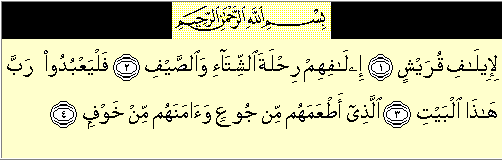 بِسْمِ ٱللَّهِ ٱلرَّحْمَٰنِ ٱلرَّحِيمِ
لِإِيلَـٰفِ قُرَيْشٍ ﴿١﴾ إِۦلَـٰفِهِمْ رِحْلَةَ ٱلشِّتَآءِ وَٱلصَّيْفِ ﴿٢﴾ فَلْيَعْبُدُوا۟ رَبَّ
هَـٰذَا ٱلْبَيْتِ ﴿٣﴾ ٱلَّذِىٓ أَطْعَمَهُم مِّن جُوعٍ وَءَامَنَهُم مِّنْ خَوْفٍۭ ﴿٤﴾